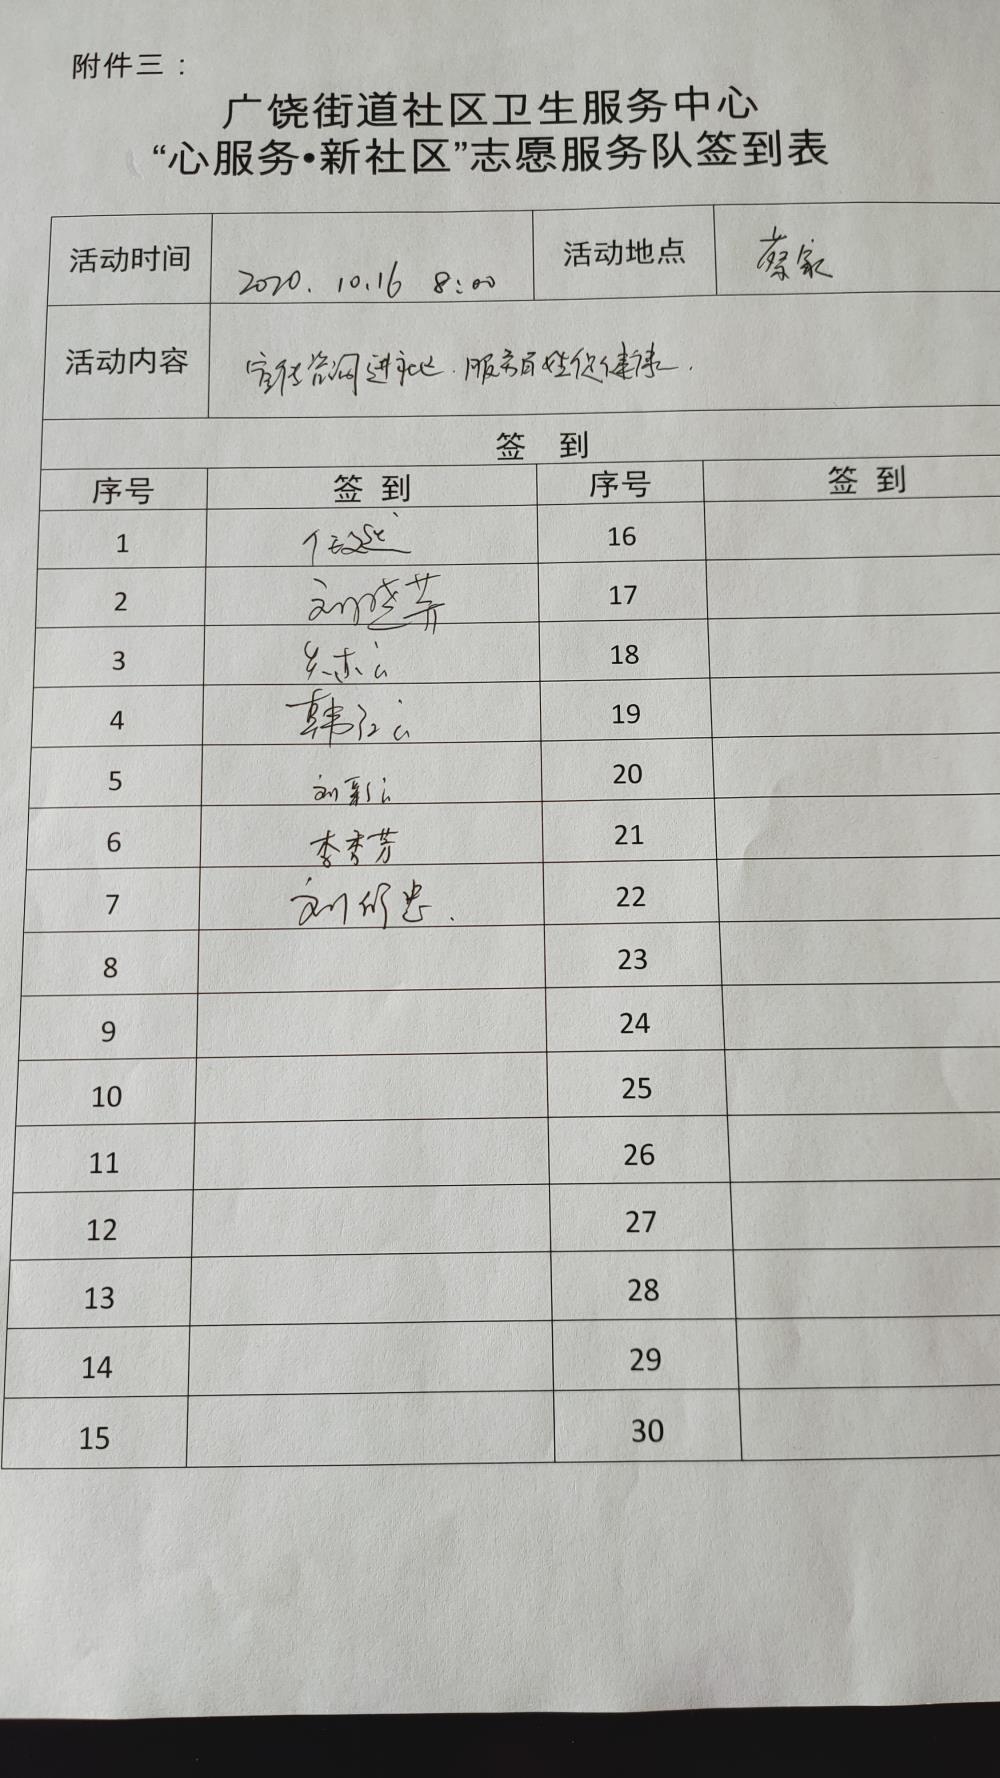 附件三：
广饶街道社区卫生服务中心
“心服务•新社区”志愿服务队签到表
活动时间 2020.10.16 8:00 活动地点 蔡家
活动内容 宣传咨询进社区.服务百姓促健康.
签 到
序号 签到 序号 签到
1 16
2 刘晓芳 17
3 18
4 韩红云 19
5 刘彩云 20
6 李秀芳 21
7 22
8 23
9 24
10 25
11 26
12 27
13 28
14 29
15 30